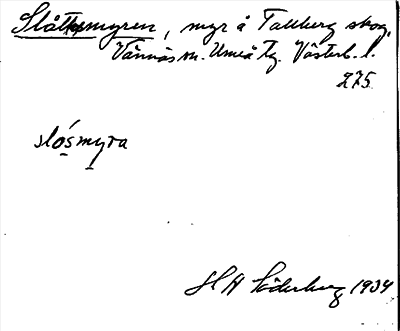 Slåttmyren, myr å Tallberg skog,
Vännäs sn. Umeå tg. Västerb. l.
275
slósmyra
H A Söderberg 1934